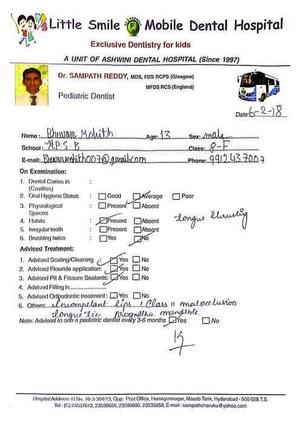 Little Smile Mobile Dental Hospital
Exclusive Dentistry for kids
A UNIT OF ASHWINI DENTAL HOSPITAL (Since 1997)
Dr. SAMPATH REDDY, MDS, FDS RCPS (Glasgow)
MFDS RCS (England)
Pediatric Dentist
Date: 6-2-18
Name: Bhuvan Mohith Age: 13 Sex: male
School: Class: 8-F
E-mail: Phone: 9912437007
On Examination:
1. Dental Caries in :
(Cavities)
2. Oral Hygiene Status : Good Average Poor
3. Physiological : Present Absent
Spaces
4. Habits : Present Absent tongue thrusting
5. Irregular teeth : Present Absent
6. Brushing twice : Yes No
Adviced Treatment:
1. Advised Scaling/Cleaning : Yes No
2. Advised Flouride application: Yes No
3. Advised Pit & Fissure Sealants: Yes No
4. Advised Filling in
5. Advised Orthodontic treatment : Yes No
6. Others: Incompetant lips, Class II malocclusion
tongue tie. Prognathic mandible.
Note: Advised to see a pediatric dentist every 3-6 months Yes No
Hospital Address: H.No. 10-3-304/13, Opp: Post Office, Humayunnagar, Masab Tank, Hyderabad - 500 028 T.S.
Tel: (C) 23537612, 23539656, 23599690, 23535858, E-mail: sampathcheruku@yahoo.com